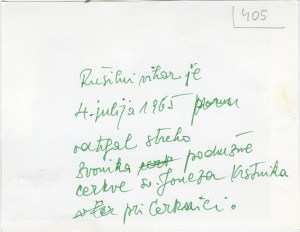 405
Rušilni vihar je
4. julija 1965
odtrgal streho
zvonika podružne
cerkve sv. Janeza Krstnika
pri Cerknici.